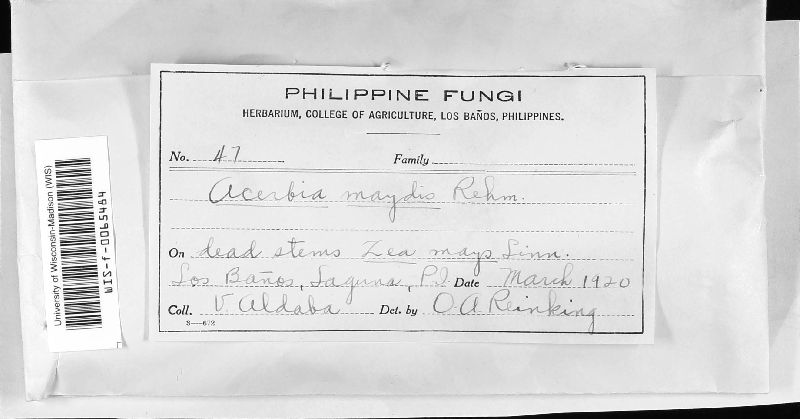 PHILIPPINE FUNGI
HERBARIUM, COLLEGE OF AGRICULTURE, LOS BAÑOS, PHILIPPINES.
No. 47 Family
Acerbia maydis Rehm.
On dead stems Zea mays Linn.
Los Baños, Laguna, P.I. Date March 1920
Coll. V. Aldaba Det. by O A Reinking
S—672
University of Wisconsin-Madison (WIS)
WIS-f-0065484